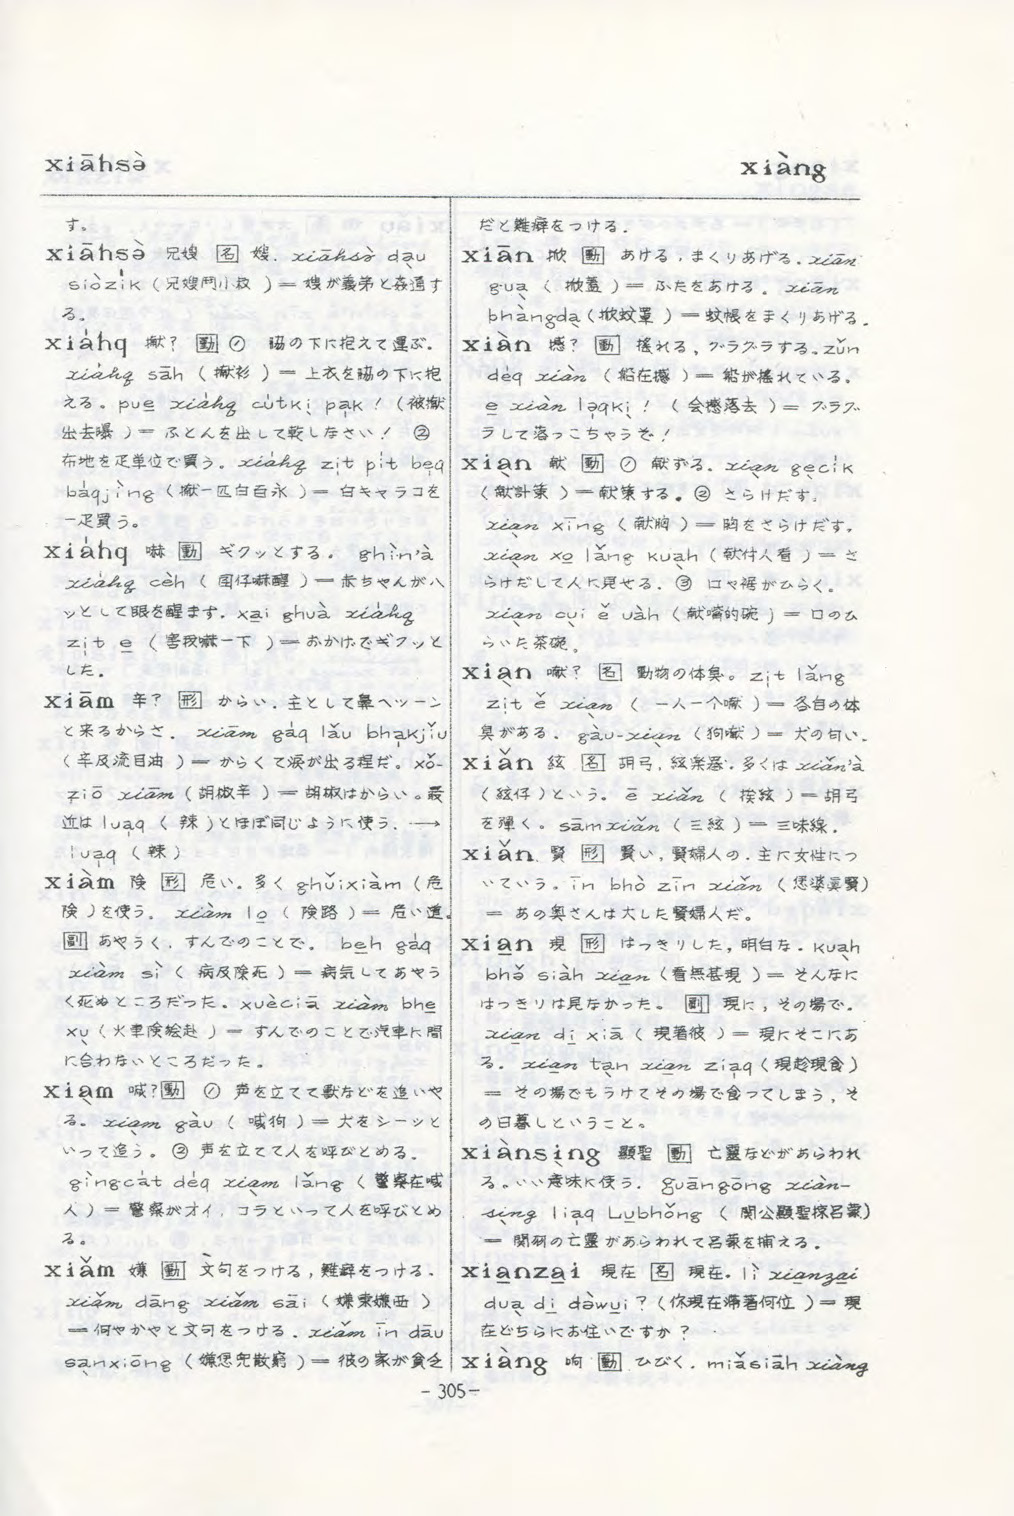 xiāhsə̀
xiàng
す。
xiāhsə̀ 兄嫂 名 嫂. xiāhsə̀ dạu
siòzi̍k (兄嫂鬥小叔 )= 嫂が義弟と姦通す
る。
xiáhq 撳? 動 ① 脇の下に抱えて運ぶ.
xiáhq sāh ( 撳衫 )= 上衣を脇の下に抱
える。pue̲ xiáhq cu̍tki̩ pa̍k! (被撳
出去曝 )= ふとんを出して乾しなさい! ②
布地を疋単位で買う. xiáhq zi̍t pi̍t be̩q
(撳一匹白百永 )= 白キャラコを
一疋買う。
xiáhq 嚇 動 ギクッとする. ghìn'à
xiáhq cèh ( 囝仔嚇醒 )= 赤ちゃんがハ
ッとして眼を醒ます. xa̲i ghuà xiáhq
zi̍t e̲ ( 害我嚇一下 )= おかげでギクッと
した.
xiām 辛? 形 からい. 主として鼻へツーン
と来るからさ. xiām gáq lǎu bha̍kjǐu
(辛及流目油 )= からくて涙が出る程だ。xǒ-
ziō xiām (胡椒辛 )= 胡椒はからい。最
近は lua̍q ( 辣 )とほぼ同じように使う. →
lua̍q (辣)
xiàm 険 形 危い. 多く ghǔixiàm (危
険 )を使う. xiàm lo̲ ( 険路 )= 危い道.
副 あやうく. すんでのことで. be̲h gáq
xiàm sì ( 病及険死 )= 病気してあやう
く死ぬところだった. xuèciā xiàm bhe̲
xu̩ (火車険絵赴 )= すんでのことで汽車に間
に合わないところだった.
xia̩m 喊? 動 ① 声を立てて獣などを追いや
る. xia̩m gàu ( 喊狗 )= 犬をシーッと
いって追う. ② 声を立てて人を呼びとめる.
gìngcát déq xia̩m lǎng ( 警察在喊
人 )= 警察がオイ, コラといって人を呼びとめ
る。
xiǎm 嫌 動 文句をつける, 難癖をつける.
xiǎm dāng xiǎm sāi ( 嫌東嫌西 )
= 何やかやと文句をつける. xiǎm īn dāu
sa̩nxiōng (嫌恁兜散窮 )= 彼の家が貧乏
だと難癖をつける.
xiān 掀 動 あける, まくりあげる. xiān
gua̩ ( 掀蓋 )= ふたをあける. xiān
bhàngda̩ (掀蚊罩 )= 蚊帳をまくりあげる.
xiàn 撼? 動 揺れる, グラグラする. zǔn
déq xiàn (船在撼 )= 船が揺れている。
e̲ xiàn lə̍qki̩! ( 会撼落去 )= グラグ
ラして落っこちゃうぞ!
xia̩n 献 動 ① 献ずる. xia̩n ge̩cík
(献計策 )= 献策する. ② さらけだす.
xia̩n xīng ( 献胸 )= 胸をさらけだす.
xia̩n xo̲ lǎng kua̩h (献付人看 )= さ
らけだして人に見せる. ③ 口や裾がひらく.
xia̩n cu̩i ě uàh (献嘴的碗 )= 口のひ
らいた茶碗.
xia̩n 名 動物の体臭. zi̍t lǎng
zi̍t ě xia̩n ( 一人一个 )= 各自の体
臭がある. gàu-xia̩n )= 犬の匂い.
xiǎn 絃 名 胡弓, 絃楽器. 多くは xiǎn'à
(絃仔)という. ē xiǎn ( 挨絃 )= 胡弓
を弾く. sāmxiǎn (三絃 )= 三味線.
xiǎn 賢 形 賢い, 賢婦人の. 主に女性につ
いていう. īn bhò zīn xiǎn ( 恁婆眞賢)
= あの奥さんは大した賢婦人だ.
xia̲n 現 形 はっきりした, 明白な. kua̩h
bhə̌ siàh xia̲n (看無甚現 )= そんなに
はっきりは見なかった. 副 現に, その場で.
xia̲n di̲ xiā ( 現着彼 )= 現にそこにあ
る. xia̲n ta̩n xia̲n zia̍q (現趁現食)
= その場でもうけてその場で食ってしまう, そ
の日暮しということ.
xiànsi̩ng 顕聖 動 亡霊などがあらわれ
る。いい意味に使う. guāngōng xiàn-
si̩ng lia̍q Lu̲bhǒng ( 関公顕聖掠呂蒙)
= 関羽の亡霊があらわれて呂蒙を捕える.
xia̲nza̲i 現在 名 現在. lì xia̲nza̲i
dua̩ di̲ dàwu̲i? (你現在滞著何位 )= 現
在どちらにお住いですか?
xiàng 响 動 ひびく. miǎsiāh xiàng
-305-